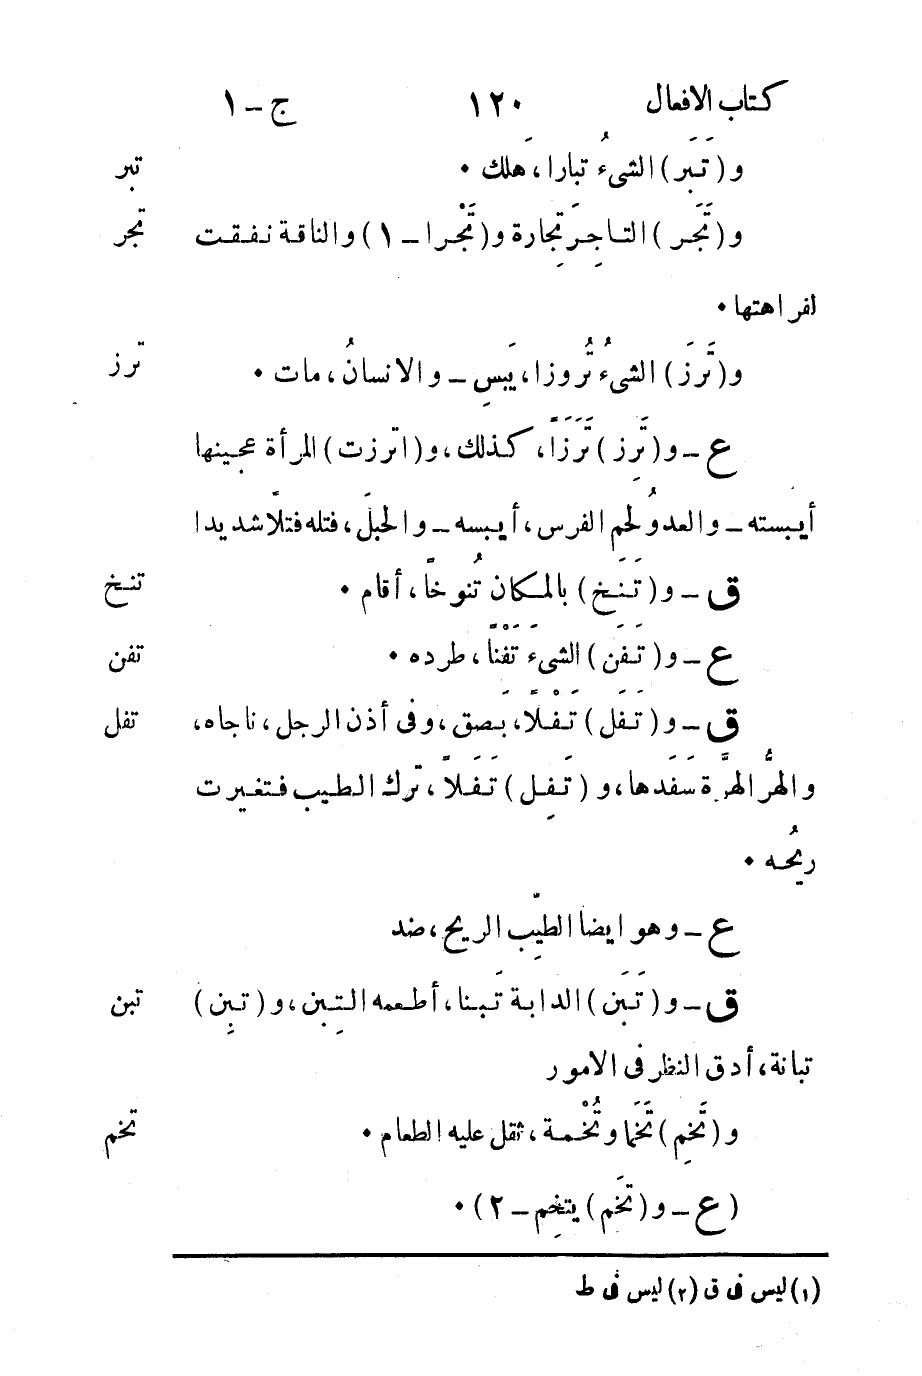 كتاب الافعال ١٢٠ ج – ١
و (تَبَر) الشىءُ تبارا، هَلك • تبر
و (تَجَر) التاجِرَ تِجارة و (تَجْرا – ١) والناقة نفقت تجر
لفراهتها •
و (تَرَز) الشىءُ تُرُوزا، يَبِس – والانسانُ، مات • ترز
ع – و (تَرِز) تَرَزًا، كذلك، و (اترزت) المرأة عجينها
أيبسته – والعدوُ لحم الفرس، أيبسه – والحبلَ، فتله فتلًا شديدا
ق – و (تَنَخ) بالمكان تُنوخًا، أقام • تنخ
ع – و (تَفَن) الشىء تَفْنًا، طرده • تفن
ق – و (تَفَل) تَفْلًا، بَصق، وفى أذن الرجل، ناجاه، تفل
والهرُّ الهرَّة سَفَدها، و (تَفِل) تَفَلاً، ترك الطيب فتغيرت
ريحُه •
ع – وهو ايضا الطيّب الريح، ضد
ق – و (تَبَن) الدابة تَبنا، أطعمه التِبن، و (تبِن) تبن
تبانة، أدق النظر فى الامور
و (تَخِم) تَخَما وتُخْمة، ثقل عليه الطعام • تخم
(ع – و (تَخَم) يتخِم – ٢) •
(١) ليس فى ق (٢) ليس فى ط